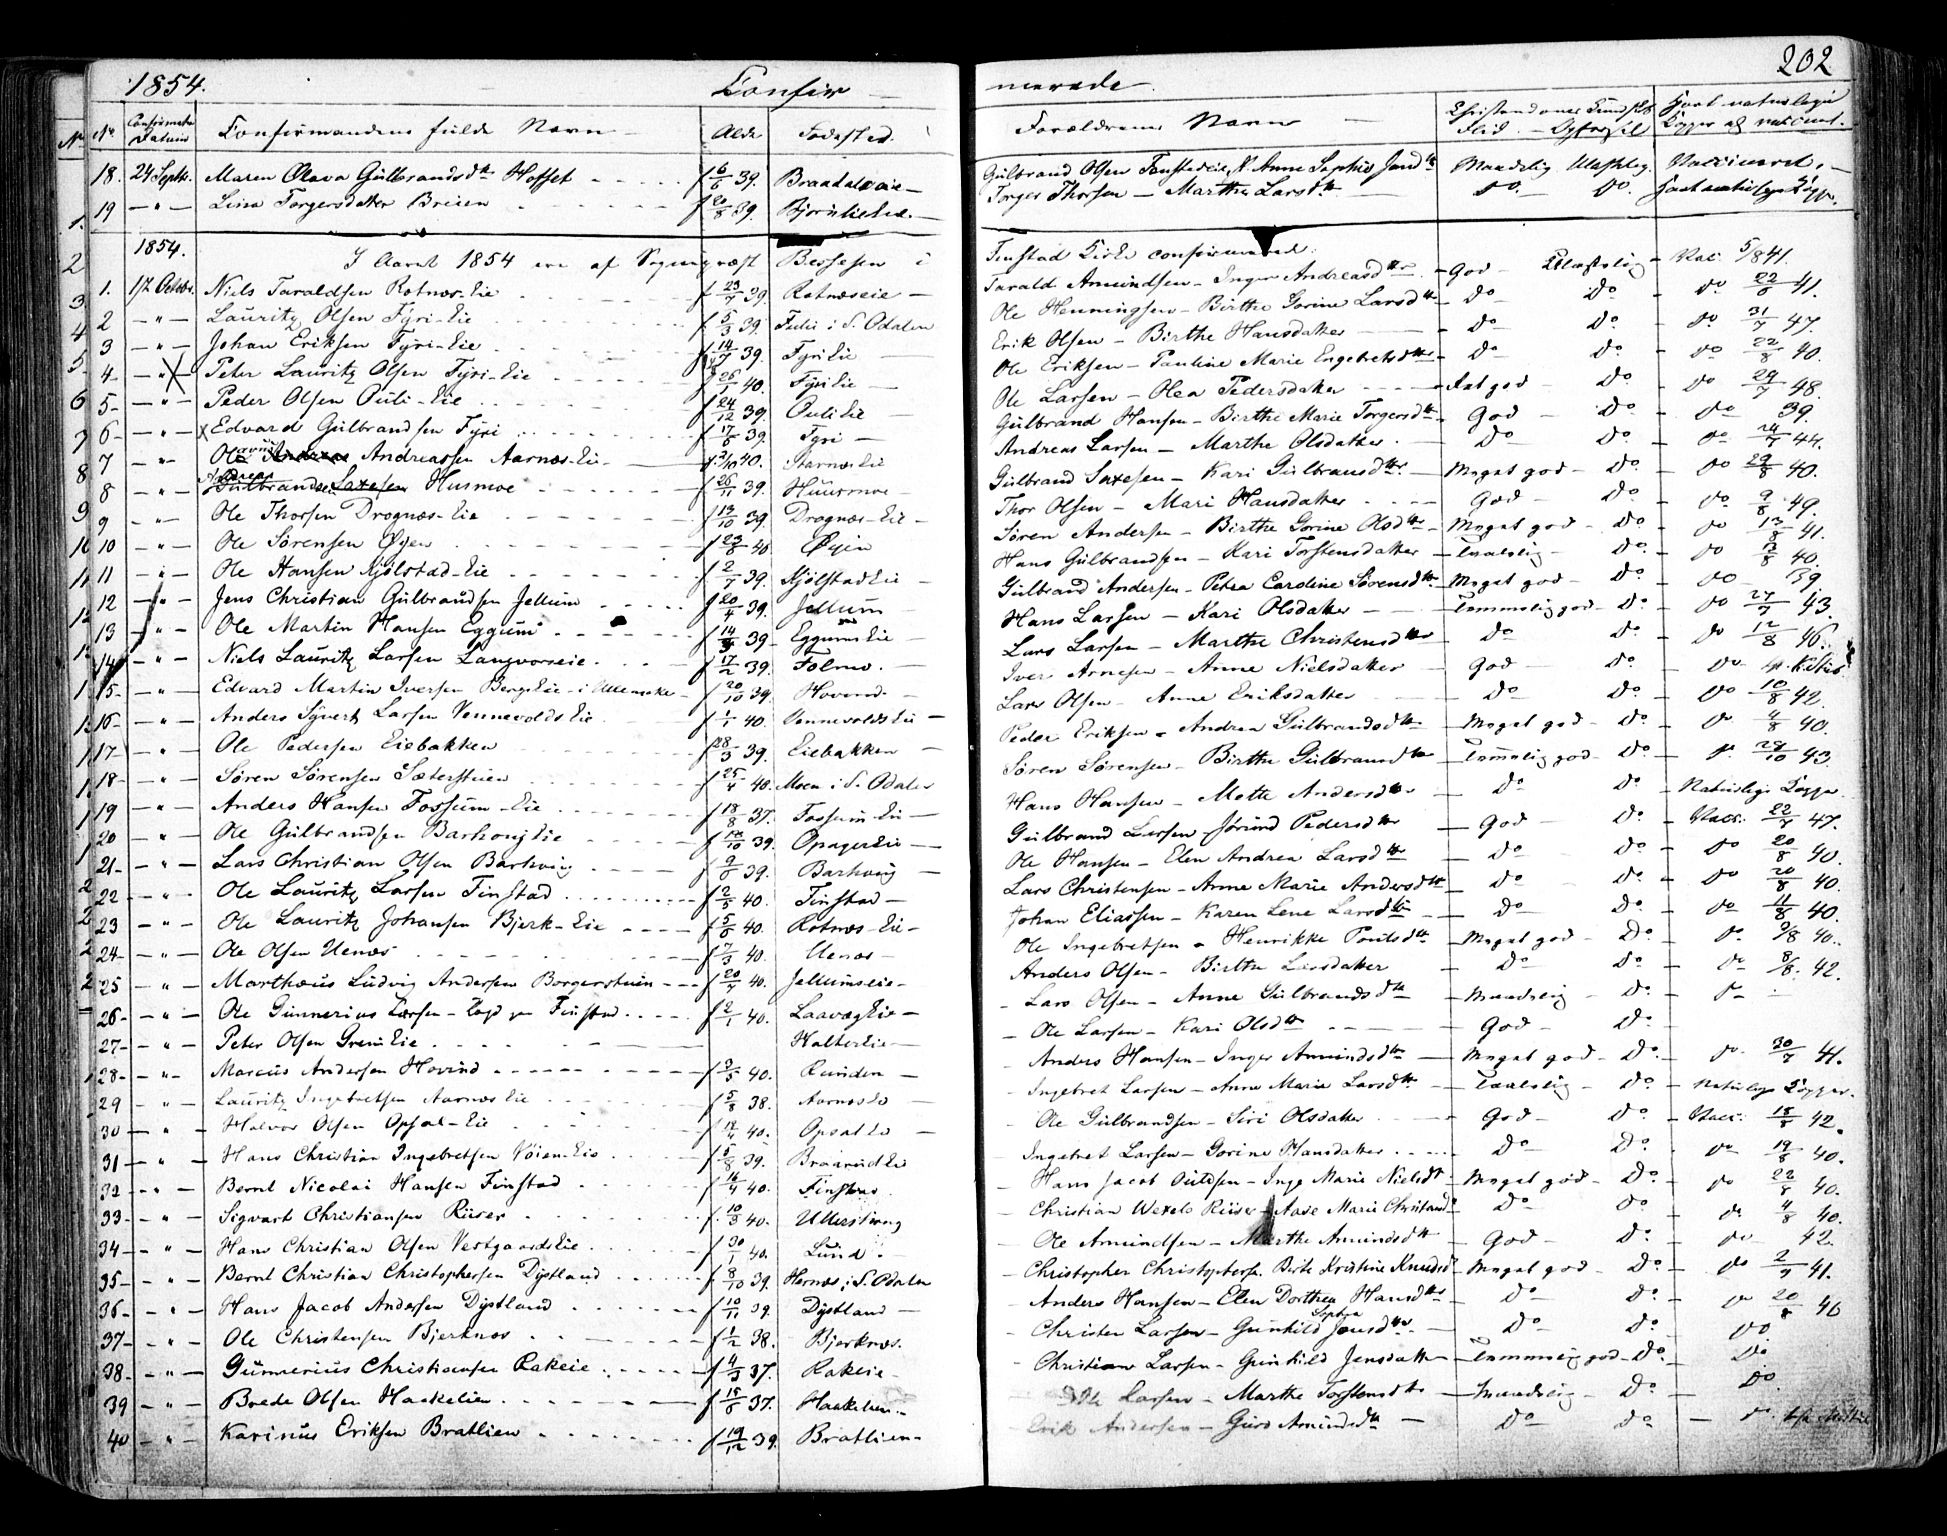 202
1854. Confir- merede.
No Confirmations Datum Confirmandens fulde Navn Alder Fødested. Forældrenes Navn Christendoms Kundskab Flid Opførsel Havt naturlige Kopper el. vaccineret.
18. 24 Septbr. Maren Olava Gülbrandsdtr Hofset f 6/6 39. Braadaleie Gülbrand Olsen Anne Sophie Jensdtr Maadelig Ulastelig Vaccineret
19 - " - Lina Torgersdatter Breien f 20/8 39. Torger Thorsen - Marthe Larsdtr do do havt naturlige Kopper.
1854. I Aaret 1854 ere af Sogneprest Bessesen i Finstad Kirke confirmerede:
1. 17 Octobr. Niels Taraldsen Rotnæs-Eie f 23/7 39 Rotnæseie Tarald Amundsen - Inger Andreasdtr God Ulastelig Vac: 5/8 41.
2 - " - Lauritz Olsen Fyri-Eie f 5/3 39 i S. Odalen Ole Henningsen - Birthe Gorine Larsdtr Do Do do 22/8 41.
3 - " - Johan Eriksen Fyri-Eie f 14/7 39. Fyri Eie Erik Olsen - Birthe Hansdatter Do Do do 31/7 47.
4 - " - Peter Lauritz Olsen Fyri-Eie f 26/1 40. Fyri Eie Ole Eriksen - Pauline Marie Engebretsdtr Do Do do 22/8 40.
5 - " - Peder Olsen Ouli-Eie f 24/12 39. Ouli Eie Ole Larsen - Olea Pedersdatter god Do do 29/7 48.
6 - " - Edvard Gülbrandsen Fyri f 17/6 39. Fyri Gülbrand Hansen - Birthe Marie Torgersdtr God Do do 39.
7 - " - Ole Andreassen Aarnæs-Eie f 2/10 40. Aarnæs Eie Andreas Larsen - Marthe Olsdatter Do Do do 44.
8 - " - Andreas Husmoe f 26/11 39. Husmoe Gülbrand Saxesen - Kari Gülbransdtr Meget god Do do 29/8 40.
9 - " - Ole Thorsen Drognæs-Eie f 13/10 39. Drognæs-Eie Thor Olsen - Mari Hansdatter God Do do 9/8 49.
10 - " - Ole Sørensen Øyen f 23/8 40 Øyen Søren Andersen - Birthe Gorine Olsdtr Meget god Do do 13/8 41.
11 - " - Ole Hansen Kjølstad-Eie f 2/7 39. Kjølstad Eie Hans Gülbrandsen - Kari Torstensdatter Do do 13/8 40.
12 - " - Jens Christian Gülbrandsen Jellum f 20/4 39. Jellum Gülbrand Andersen - Petra Caroline Sørensdtr Meget god Do do 39
13 - " - Ole Martin Hansen Eggum f 14/ 39 Eggums Eie Hans Larsen - Kari Olsdatter Temmelig god Do do 27/7 43.
14 - " - Niels Lauritz Larsen Langvorseie f 17/2 39. Folmo. Lars Larsen - Marthe Christensdtr Do Do do 12/8 46.
15 - " - Edvard Martin Iversen Bergs Eie i Ullensaker f 20/10 39. Iver Arnesen - Anne Nielsdatter God Do do
16 - " - Anders Syvert Larsen Vennevolds Eie f 1/1 40. Vennevolds Eie Lars Olsen - Anne Eriksdatter Do Do do 10/8 42.
17 - " - Ole Pedersen Eiebakken f 28/3 39. Eiebakken Peder Eriksen - Andrea Gülbrandsdtr Meget god Do do 4/8 40.
18 - " - Søren Sørensen Sæterstuen f 25/4 40. Moen i S. Odalen Søren Sørensen - Birthe Gülbransdtr Temmelig god Do do 28/10 43.
19 - " - Anders Hansen Fossum-Eie f 18/8 37. Fossum Eie Hans Hansen - Mette Andersdtr Do Do Naturlige Kopper
20 - " - Ole Gülbrandsen Barhougeie f 12/10 39. Gülbrand Larsen - Jørand Pedersdtr God Do Vacc: 22/7 47.
21 - " - Lars Christian Olsen Barhoug f 9/8 39. Barhoug Ole Hansen - Elen Andrea Larsdtr Do Do do 20/8 40.
22 - " - Ole Lauritz Larsen Finstad f 2/5 40. Finstad Lars Christensen - Anne Marie Andersdtr Do Do do 20/8 40.
23 - " - Ole Lauritz Johansen Bjerk-Eie f 5/6 40. Rotnæs-Eie Johan Eliassen - Karen Lene Larsdtr Do Do do 11/8 40.
24 - " - Ole Olsen Uenæs f 7/3 40. Uenæs Ole Ingebretsen - Henrikke Poulsdtr Meget god Do do 9/8 40.
25 - " - Marthæus Ludvig Andersen Borgerstuen f 20/7 40. Jellumseie Anders Olsen - Birthe Larsdatter Do Do do 8/8. 42.
26 - " - Ole Gunnerius Larsen - Finstad f 2/1 40. Laavæg Eie Lars Olsen - Anne Gülbrandsdtr Maadelig Do
27 - " - Peter Olsen Greni Eie Halter Eie Ole Larsen - Kari Olsdtr God Do
28 - " - Marcus Andersen Hovind f 3/5 40. Runden Anders Hansen - Inger Amundsdtr Meget god Do do 30/7 41.
29 - " - Lauritz Ingebretsen Aarnæs Eie f 5/8 38. Aarnæs Ingebret Larsen - Anne Marie Larsdtr Do Naturlige Kopper.
30 - " - Halvor Olsen Opsal-Eie f 17/4 40. Opsal Ole Gülbrandsen - Siri Olsdatter God Do Vacc: 18/ 42.
31 - " - Hans Christian Ingebretsen Vøien-Eie f 5/8 39. Braarud Eie Ingebret Larsen - Gorine Hansdatter Do Do do 19/8 40.
32 - " - Bernt Nicolai Hansen Finstad f 16/4 40. Finstad Hans Jacob - Inge Marie Nielsdtr Meget god Do do 22/8 40.
33 - " - Sigvart Christiansen Riiser f 10/3 40. Christian Wexels Riiser - Aase Marie Do Do do 4/8 40.
34 - " - Hans Christian Olsen Vestgaards Eie f 30/1 40. Lund. Ole Amundsen - Marthe Amundsdtr God Do do 42.
35 - " - Bernt Christian Christophersen Dystland f 8/10 39. Hernæs i S. Odalen Christopher Christophers. Birte Kristine Knudsd Meget god Do do 2/7 41.
36 - " - Hans Jacob Andersen Dystland f 10/11 39. Dystland Anders Hansen - Elen Dorthea Hansdtr Do Do do 20/8 40
37 - " - Ole Christensen Bjerknes f 1/2 38. Bjerknæs. Christen Larsen - Gunhild Sophia Jensdtr Do Do do
38 - " - Gunnerius Christiansen Rakeie f 4/3 37. Rakeie Christian Larsen - Gunhild Jensdatter Temmelig god Do Do
39 - " - Brede Olsen Haakelien f 15/6 37. Haakelien Ole Larsen - Marthe Torstensdtr Maadelig Do Do
40 - " - Karinus Eriksen Bratlien f 19/12 39. Bratlien Erik Andersen - Guro Amundsdtr Do Do do